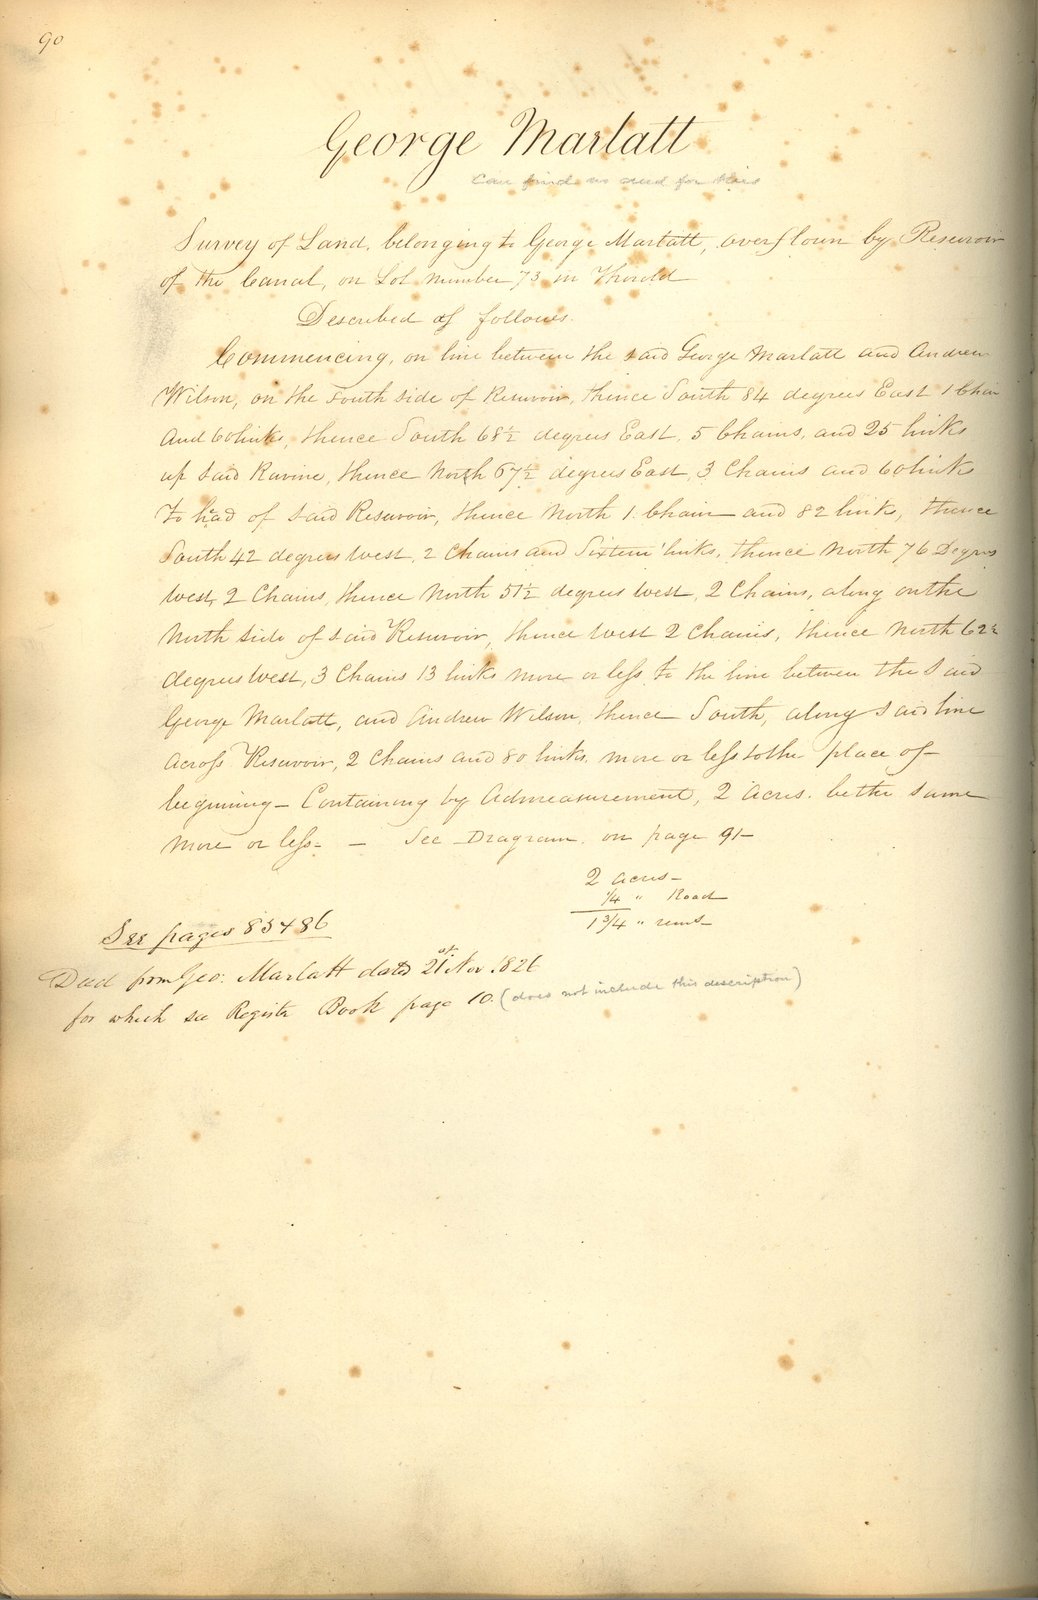 90
George Marlatt
Can find no deed for this
Survey of Land, belonging to George Marlatt, overflown by Reservoir
of the Canal, on Lot Number 73 in Thorold
Described as follows.
Commencing, on line between the said George Marlatt and Andrew
Wilson, on the South side of Reservoir, thence South 84 degrees East 1 Chain
and 60 links, thence South 68½ degrees East, 5 Chains, and 25 links
up said Ravine, thence North 67½ degrees East, 3 Chains and 60 links
to head of said Reservoir, thence North 1 Chain and 82 links, thence
South 42 degrees West, 2 Chains and Sixteen links, thence North 76 Degrees
West, 2 Chains, thence North 51½ degrees West, 2 Chains, along on the
North side of said Reservoir, thence West 2 Chains, thence North 62½
degrees West, 3 Chains 13 links more or less to the line between the said
George Marlatt, and Andrew Wilson, thence South, along said line
across Reservoir, 2 Chains and 80 links, more or less to the place of
beginning – Containing by Admeasurement, 2 acres. be the same
more or less – – See Diagram on page 91 –
2 acres –
¼ " Road
1 3/4 " rems –
See pages 85 & 86
Deed from Geo: Marlatt dated 21st Nov. 1826
for which see Register Book page 10. (does not include this description)